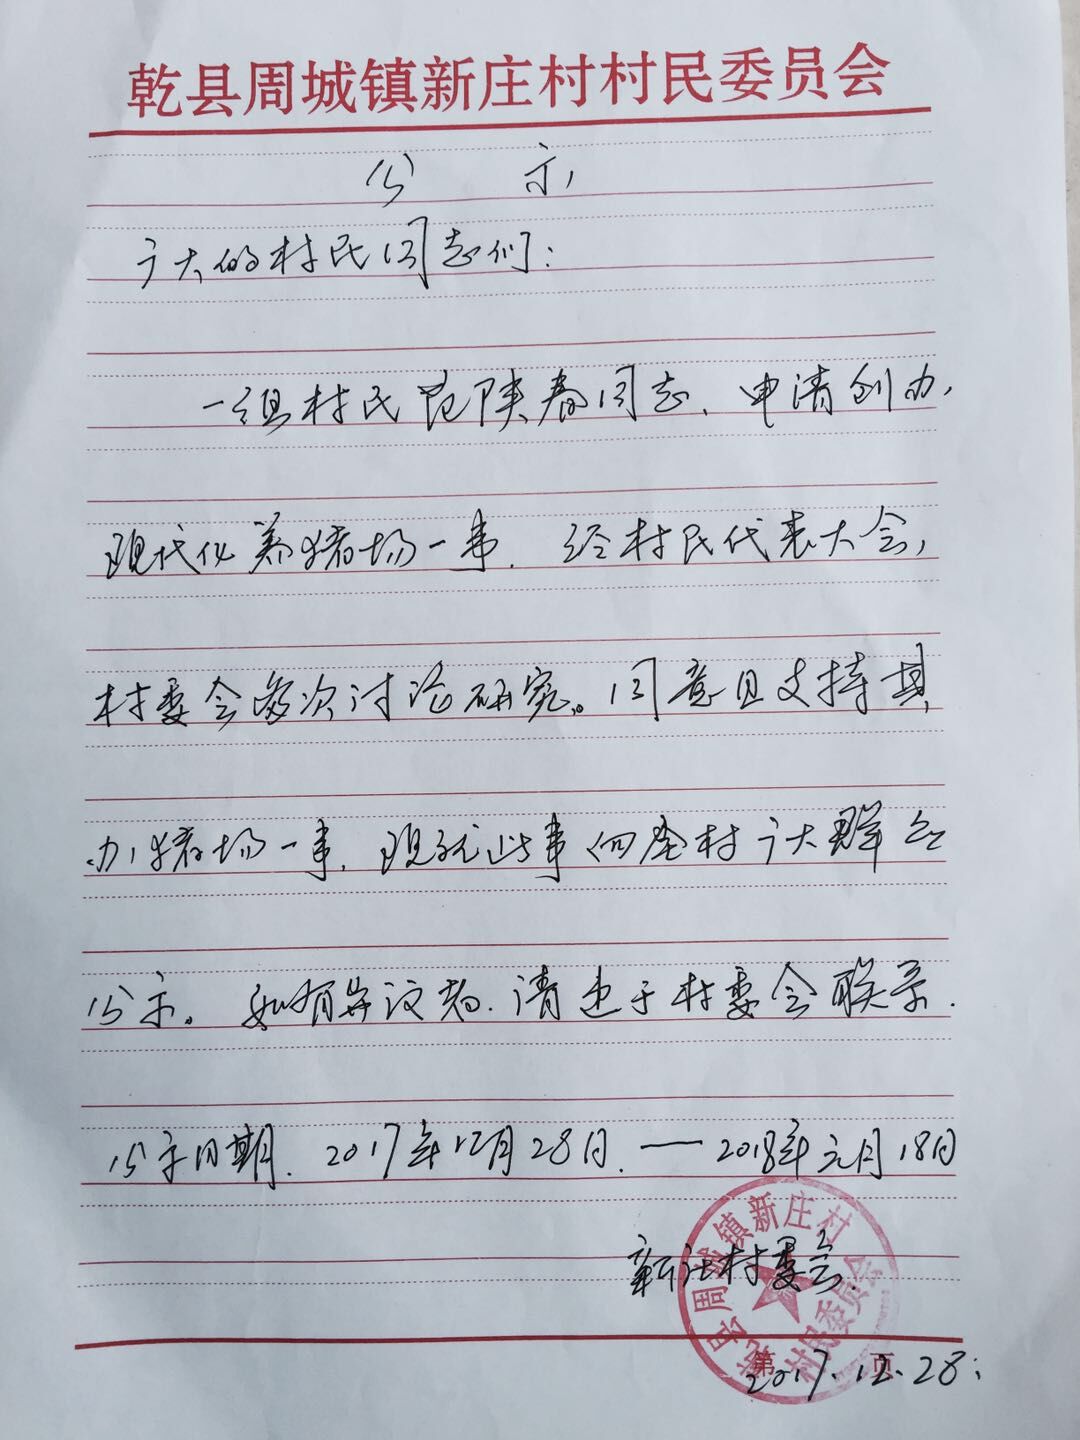 乾县周城镇新庄村村民委员会
公 示
广大的村民同志们:
一组村民范陕春同志、申请创办
现代化养猪场一事. 经村民代表大会,
村委会多次讨论研究。同意且支持其
办猪场一事. 现就此事向全村广大群众
公示。如有异议者. 请速于村委会联系.
公示日期. 2017年12月28日.——2018年元月18日
新庄村委会.
乾县周城镇新庄村
村民委员会
第 页
2017.12.28;